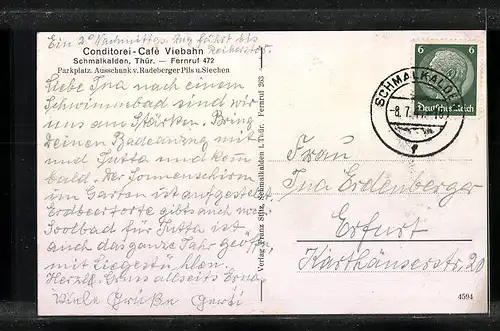 Ein 2° Nachmittag Zug fährt bis
Reiherstor.
Conditorei-Café Viebahn
Schmalkalden, Thür. — Fernruf 472
Parkplatz. Ausschank v. Radeberger Pils u. Siechen
Liebe Ina nach einem
Schwimmbad sind wir
uns am Stärken. Bring
Deinen Badeanzug mit
und Jutta und kom
bald. Der Sonnenschirm
im Garten ist aufgestellt
Erdbeertorte gibts auch noch
Soolbad für Jutta ist
auch das ganze Jahr geöff,
mit Liegestühlen.
Herzl. Gruss allseits Erna
Viele Grüße Gerti
Verlag Franz Stitz, Schmalkalden i. Thür. Fernruf 263
6 6
Deutsches Reich
SCHMALKALDEN
8.7.
f
Frau
Ina Erdenberger
Erfurt
Karthäuserstr. 20
4594